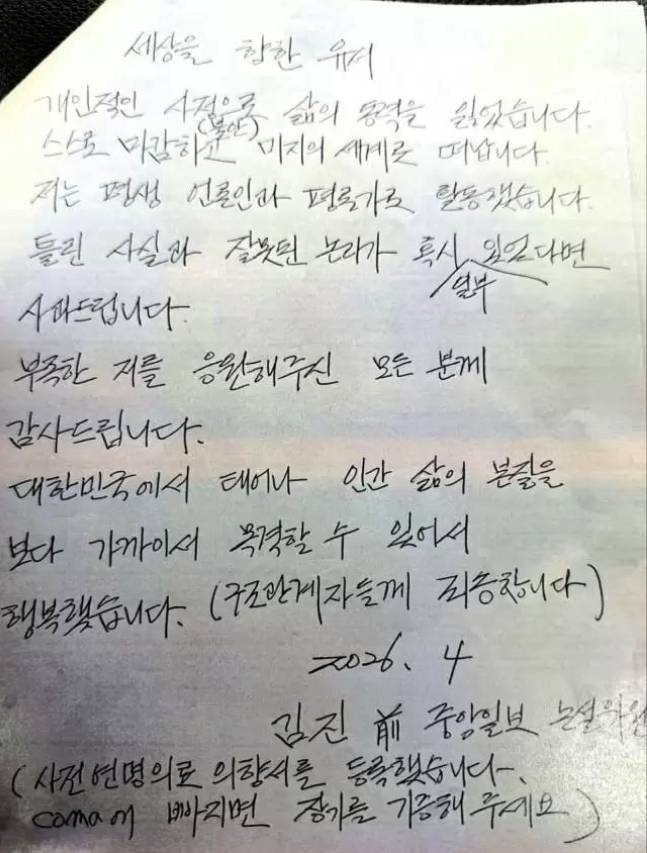 세상을 향한 유서
개인적인 사정으로 삶의 동력을 잃었습니다.
스스로 마감하고(불안) 미지의 세계로 떠납니다.
저는 평생 언론인과 평론가로 활동했습니다.
틀린 사실과 잘못된 논리가 혹시 일부 있었다면
사과드립니다.
부족한 저를 응원해주신 모든 분께
감사드립니다.
대한민국에서 태어나 인간 삶의 본질을
보다 가까이서 목격할 수 있어서
행복했습니다. (구조관계자들께 죄송합니다)
2026. 4
김진 前 중앙일보 논설위원
(사전연명의료 의향서를 등록했습니다.
coma에 빠지면 장기를 기증해 주세요)